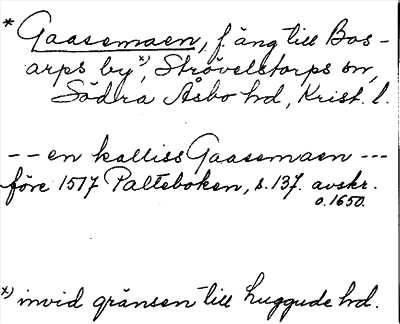 * Gaasemaen, f. äng till Bos-
arps by x), Strövelstorps sn,
Södra Åsbo hd, Krist. l.
-- en kalliss Gaasemaen ---
före 1517 Palteboken, s. 137. avskr.
o. 1650.
x) invid gränsen till Luggude hd.